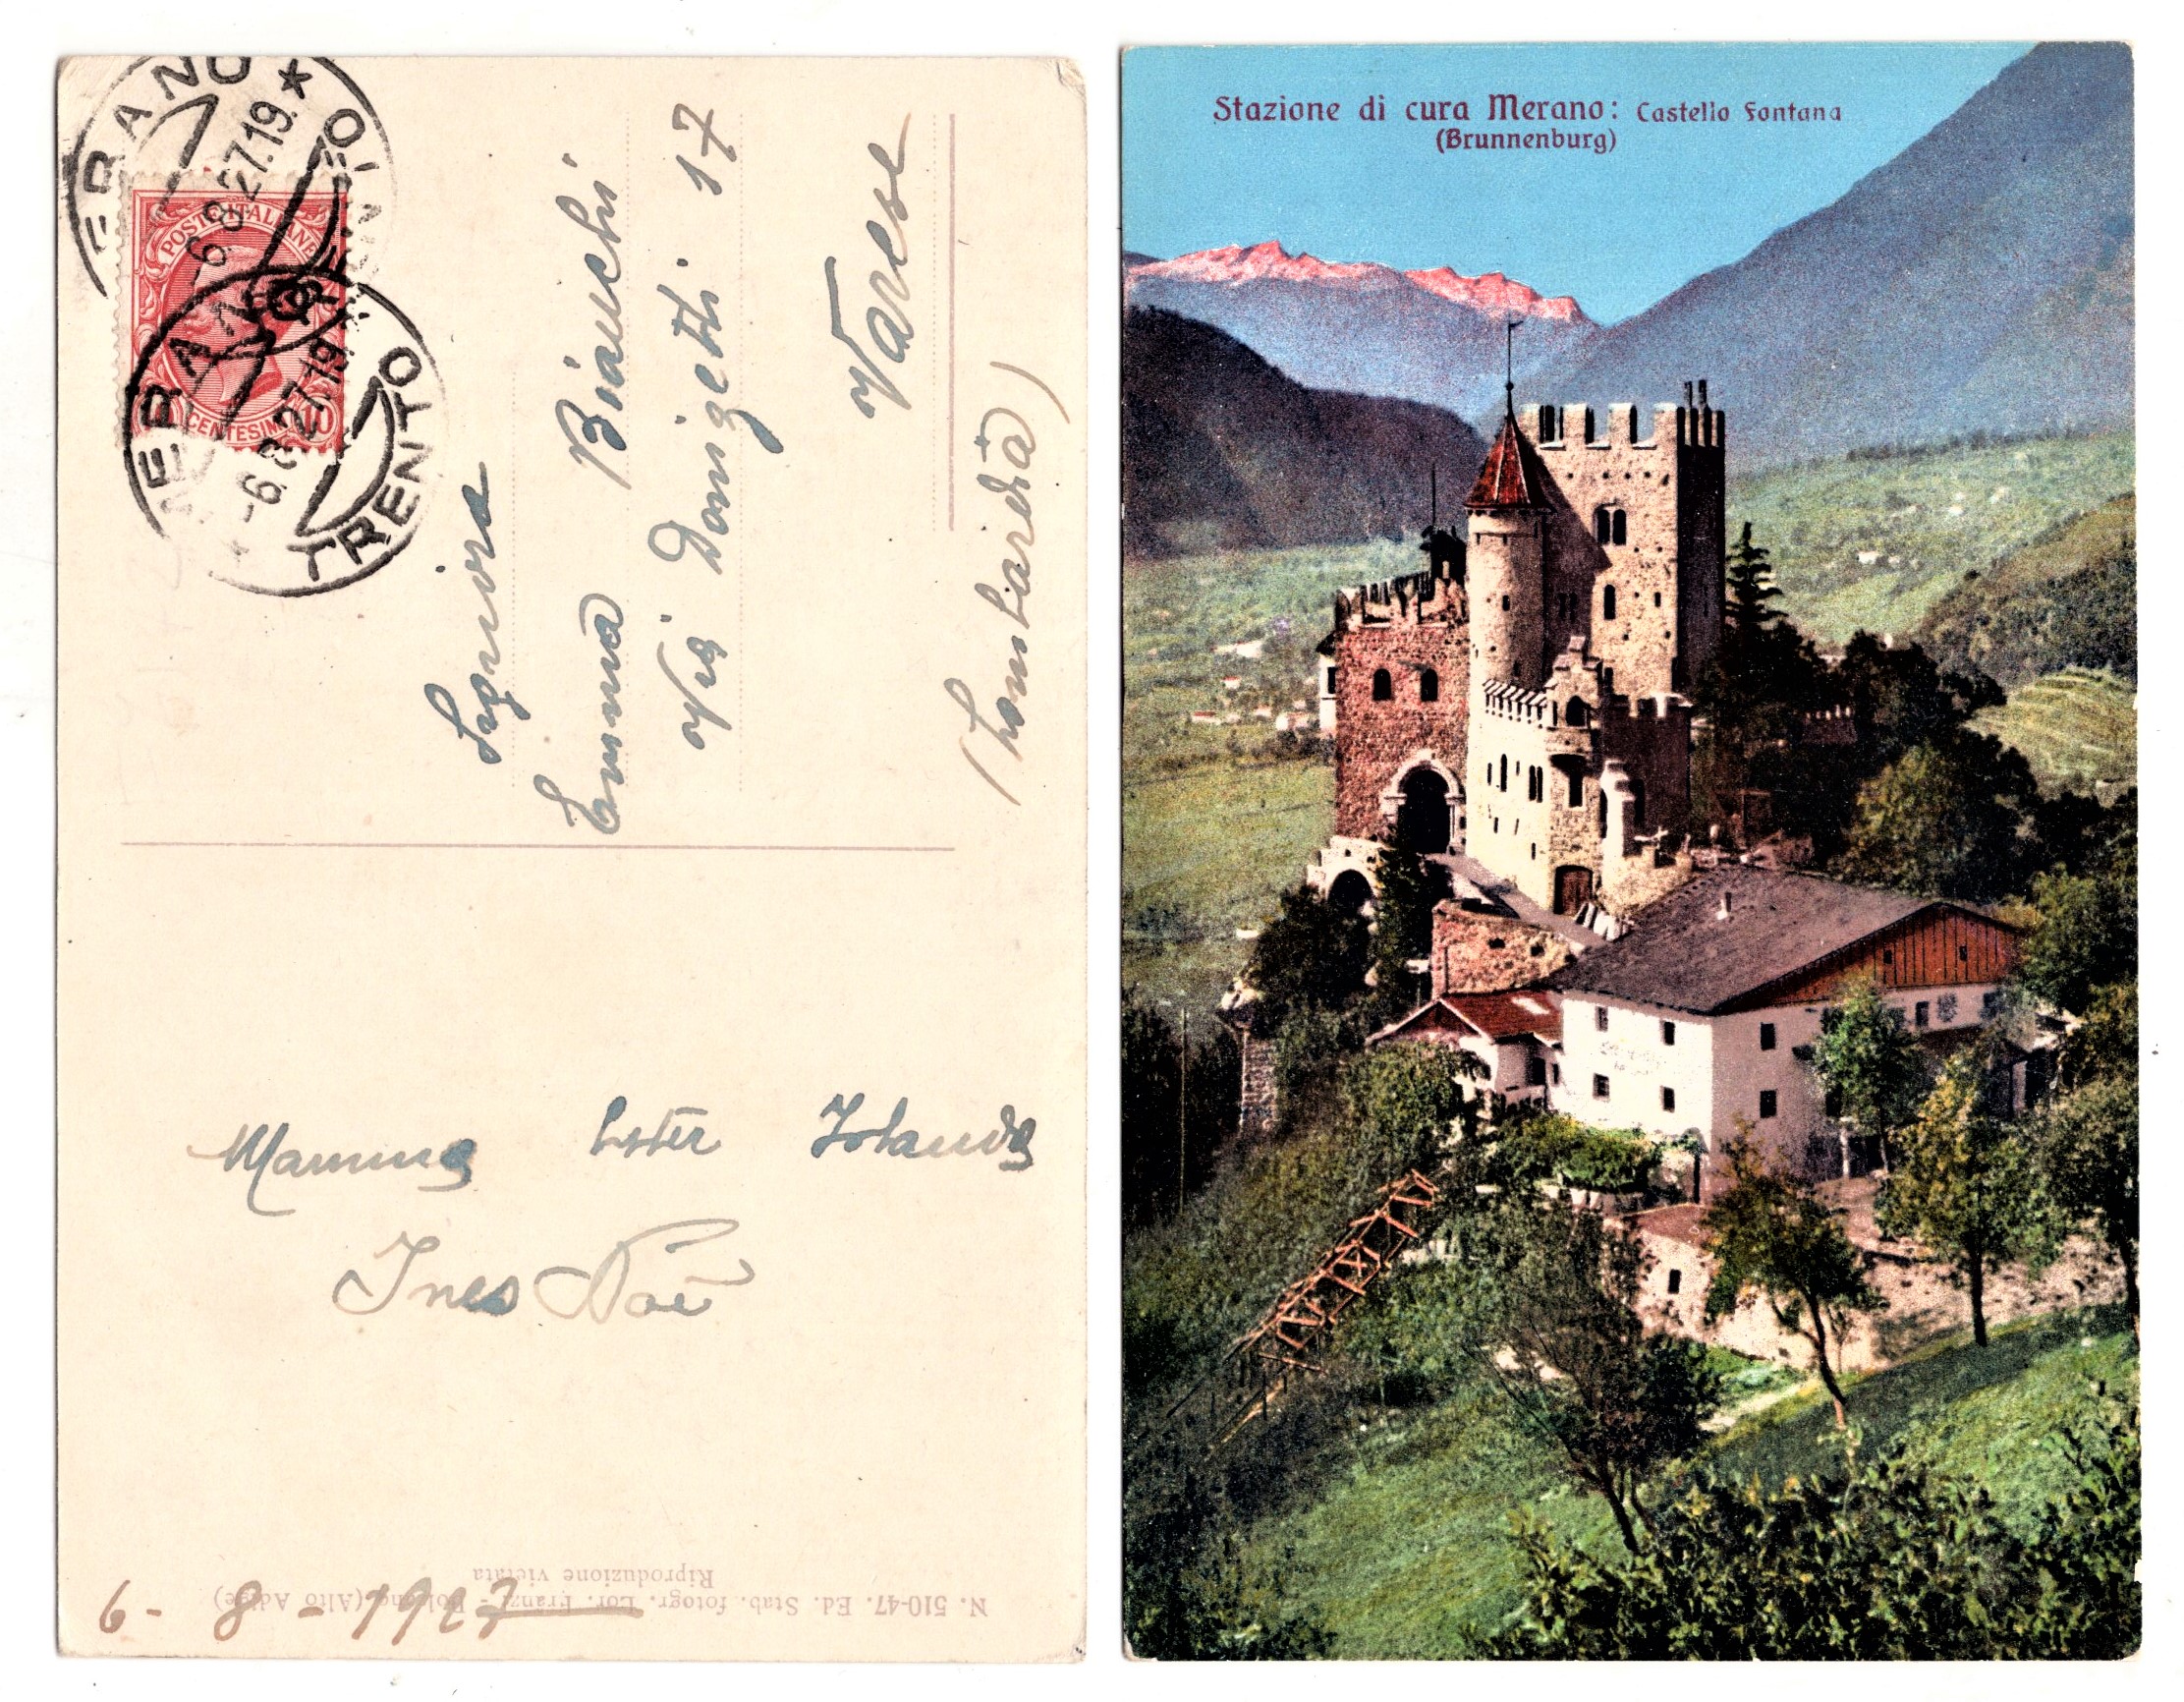 MERANO
TRENTO
-6.8.27.19 ★
POSTE ITALIANE
CENTESIMI 10
MERANO
TRENTO
-6.8.27.19
Signora
Emma Bianchi
Via Donizetti 17
Varese
(Lombardia)
Mamma Ester Iolanda
Ines Noè
N. 510-47. Ed. Stab. fotogr. Lor. Fränzl - Bolzano (Alto Adige)
Riproduzione vietata
6 - 8 - 1927
Stazione di cura Merano: Castello Fontana
(Brunnenburg)